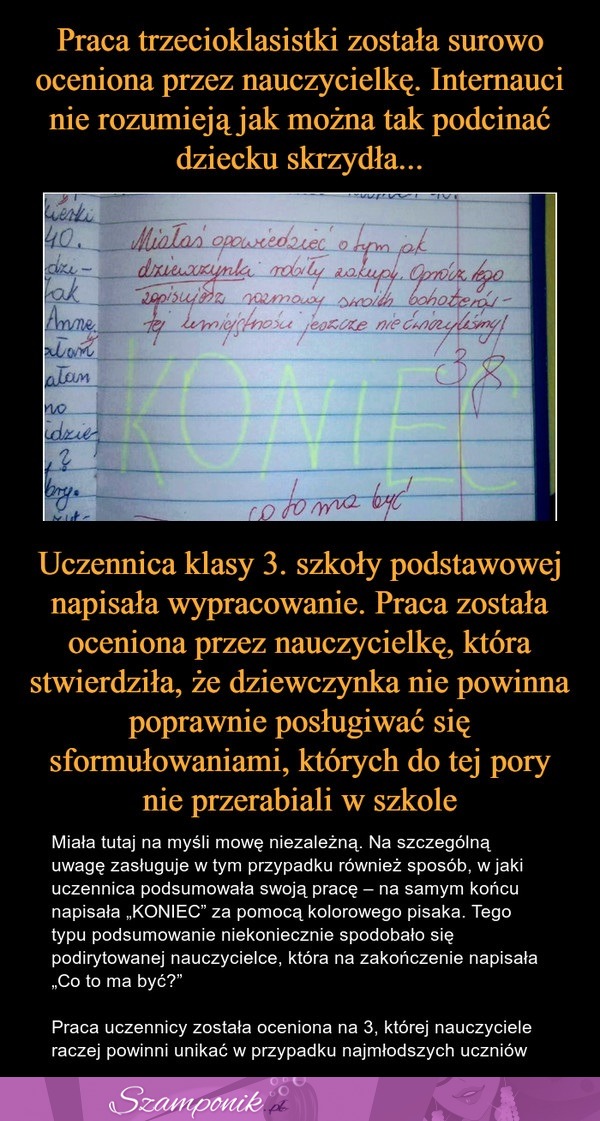 Praca trzecioklasistki została surowo
oceniona przez nauczycielkę. Internauci
nie rozumieją jak można tak podcinać
dziecku skrzydła...
40.
dzi-
tak
Annę
no
idzie-
?
Miałaś opowiedzieć o tym jak
dziewczynka robiły zakupy. Oprócz tego
zapisujesz rozmowy swoich bohaterów-
tej umiejętności jeszcze nie ćwiczyliśmy!
3
KONIEC
co to ma być
Uczennica klasy 3. szkoły podstawowej
napisała wypracowanie. Praca została
oceniona przez nauczycielkę, która
stwierdziła, że dziewczynka nie powinna
poprawnie posługiwać się
sformułowaniami, których do tej pory
nie przerabiali w szkole
Miała tutaj na myśli mowę niezależną. Na szczególną
uwagę zasługuje w tym przypadku również sposób, w jaki
uczennica podsumowała swoją pracę – na samym końcu
napisała „KONIEC” za pomocą kolorowego pisaka. Tego
typu podsumowanie niekoniecznie spodobało się
podirytowanej nauczycielce, która na zakończenie napisała
„Co to ma być?”
Praca uczennicy została oceniona na 3, której nauczyciele
raczej powinni unikać w przypadku najmłodszych uczniów
Szamponik.pl